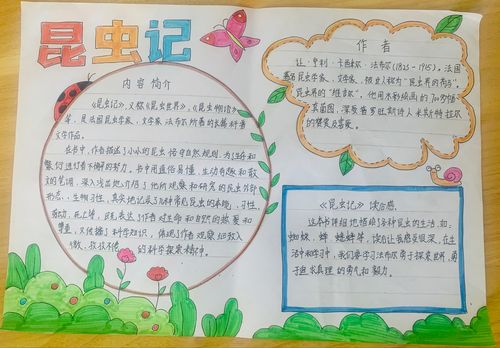 昆虫记
内容简介
《昆虫记》,又称《昆虫世界》、《昆虫物语》
等,是法国昆虫学家、文学家法布尔所著的长篇科普
文学作品。
在书中,作者描述了小小的昆虫恪守自然规则,为了生存和
繁衍进行着不懈的努力。书中用通俗易懂、生动有趣和散
文的笔调,深入浅出地介绍了他所观察和研究的昆虫的外部
形态、生物习性,真实地记录了几种常见昆虫的本能、习性、
劳动、死亡等,既表达了作者对生命和自然的热爱和
尊重,又传播了科学知识,体现了作者观察细致入
微、孜孜不倦的科学探索精神。
作者
让·亨利·卡西米尔·法布尔(1823-1915)。法国
著名昆虫学家、文学家。被世人称为"昆虫界的荷马",
昆虫界的"维吉尔"。他用水彩绘画的700多幅
真菌图,深受普罗旺斯诗人米斯特拉尔
的赞赏及喜爱。
《昆虫记》读后感
这本书详细地描绘了各种昆虫的生活,如:
蜘蛛、蜂、蟋蟀等,读后让我感受很深,在生
活中和学习中,我们要学习法布尔勇于探索世界,勇
于追求真理的勇气和毅力。